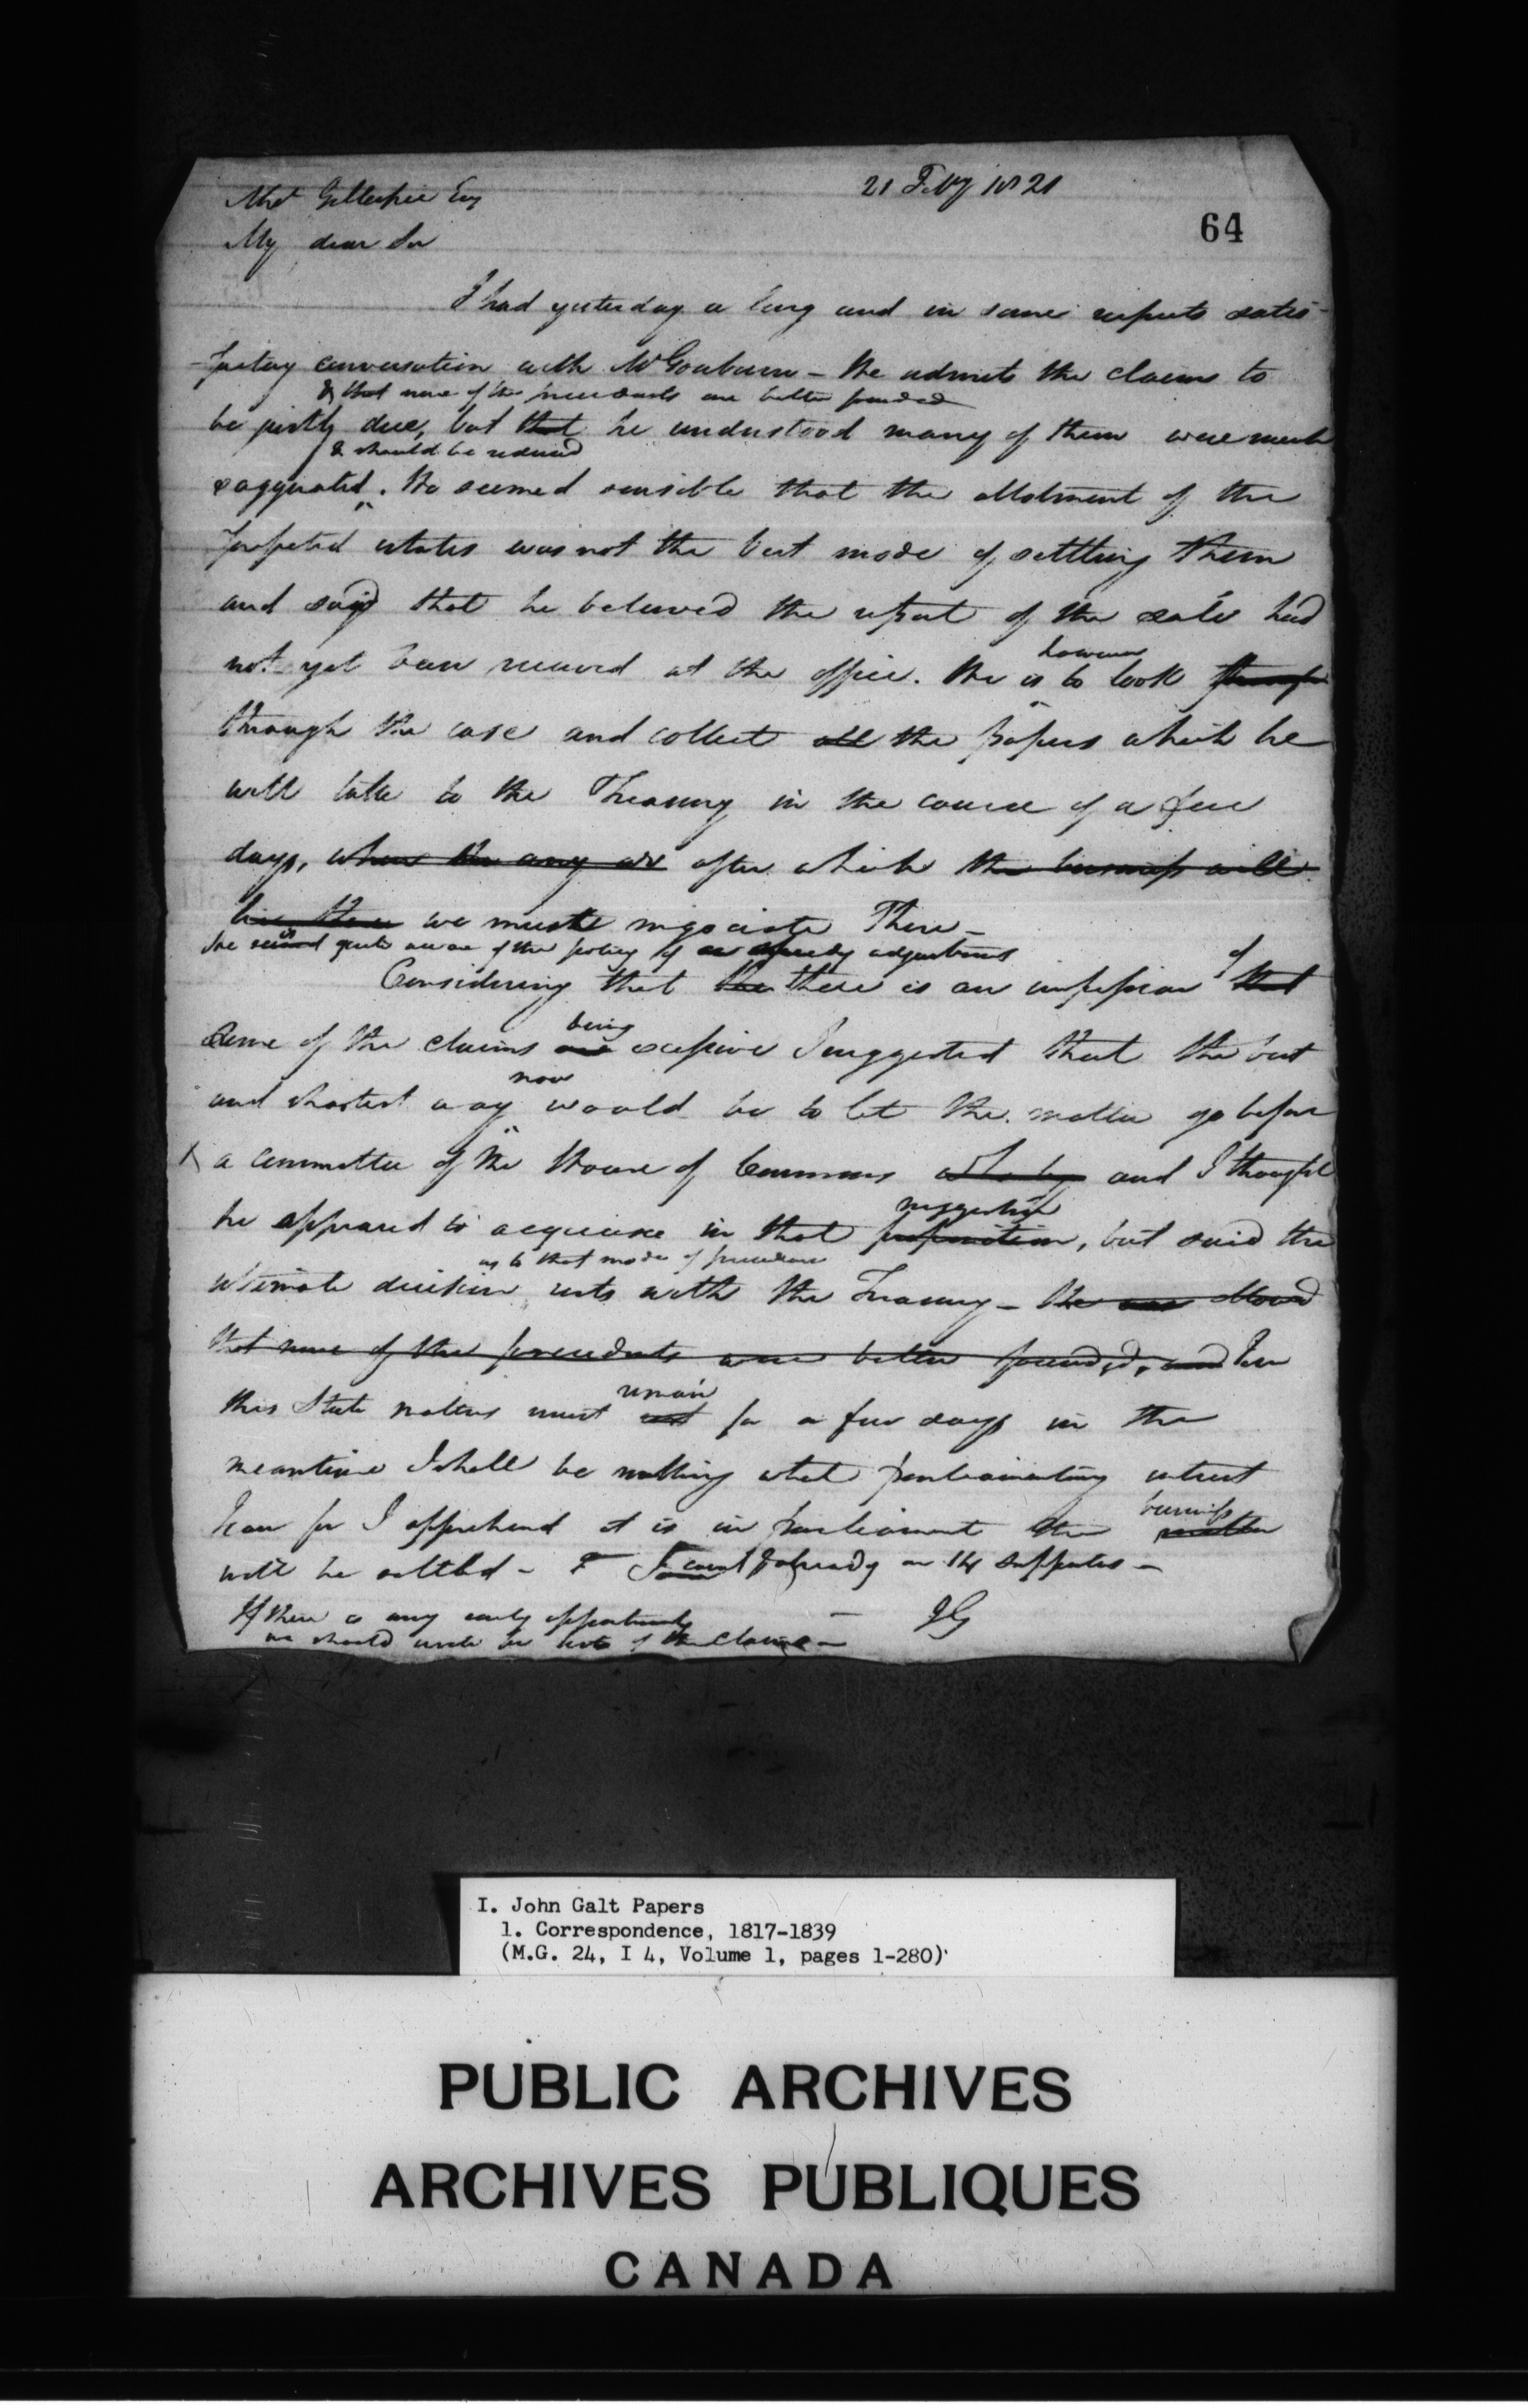 21 Feby 1821
Gillespie Esq
64
My dear Sir
I had yesterday a long and in some respects satis-
-factory conversation with Mr Goulburn - He admits the claims to
& that none of the precedents are better founded
be justly due, but that he understood many of them were much
& should be reduced
exaggerated. He seemed sensible that the allotment of the
forfeited estates was not the best mode of settling them
and said that he believed the report of the sale had
however
not yet been received at the office. He is to look through
through the case and collect all the papers which he
will take to the Treasury in the course of a few
days, when the any are after which the business will
be there we must negociate There -
he seemed quite aware of the policy of a speedy adjustment
of
Considering that the there is an impression that
being
some of the claims are excessive I suggested that the best
now
and shortest way would be to let the matter go before
a committee of the House of Commons and I thought
suggestion
he appeared to acquiesce in that proposition, but said the
as to that mode of procedure
ultimate decision rests with the Treasury - He was allowed
that none of the precedents were better founded, and In
remain
this State matters must rest for a few days in the
meantime I shall be making what parliamentary interest
business
I can for I apprehend it is in parliament the matter
will be settled - I count already on 14 supporters -
If there is any early opportunity
JG
we should write for lists of the claims -
I. John Galt Papers
1. Correspondence, 1817-1839
(M.G. 24, I 4, Volume 1, pages 1-280)
PUBLIC ARCHIVES
ARCHIVES PUBLIQUES
CANADA